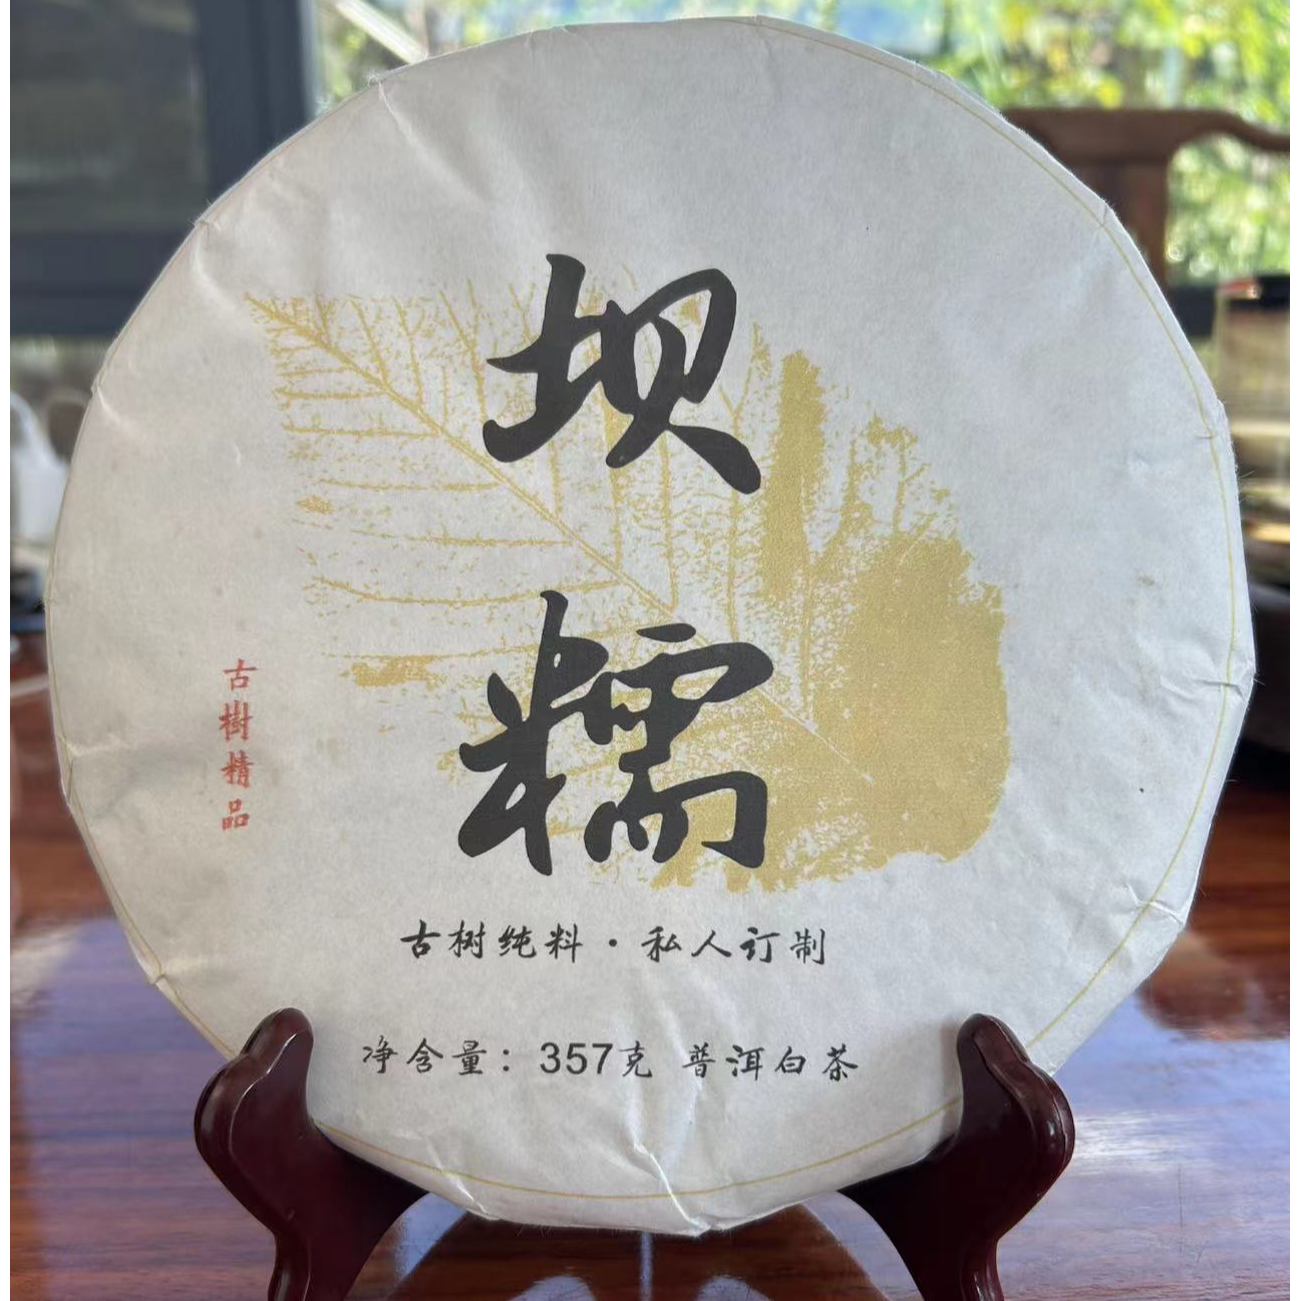 坝糯
古樹精品
古树纯料·私人订制
净含量：357克 普洱白茶